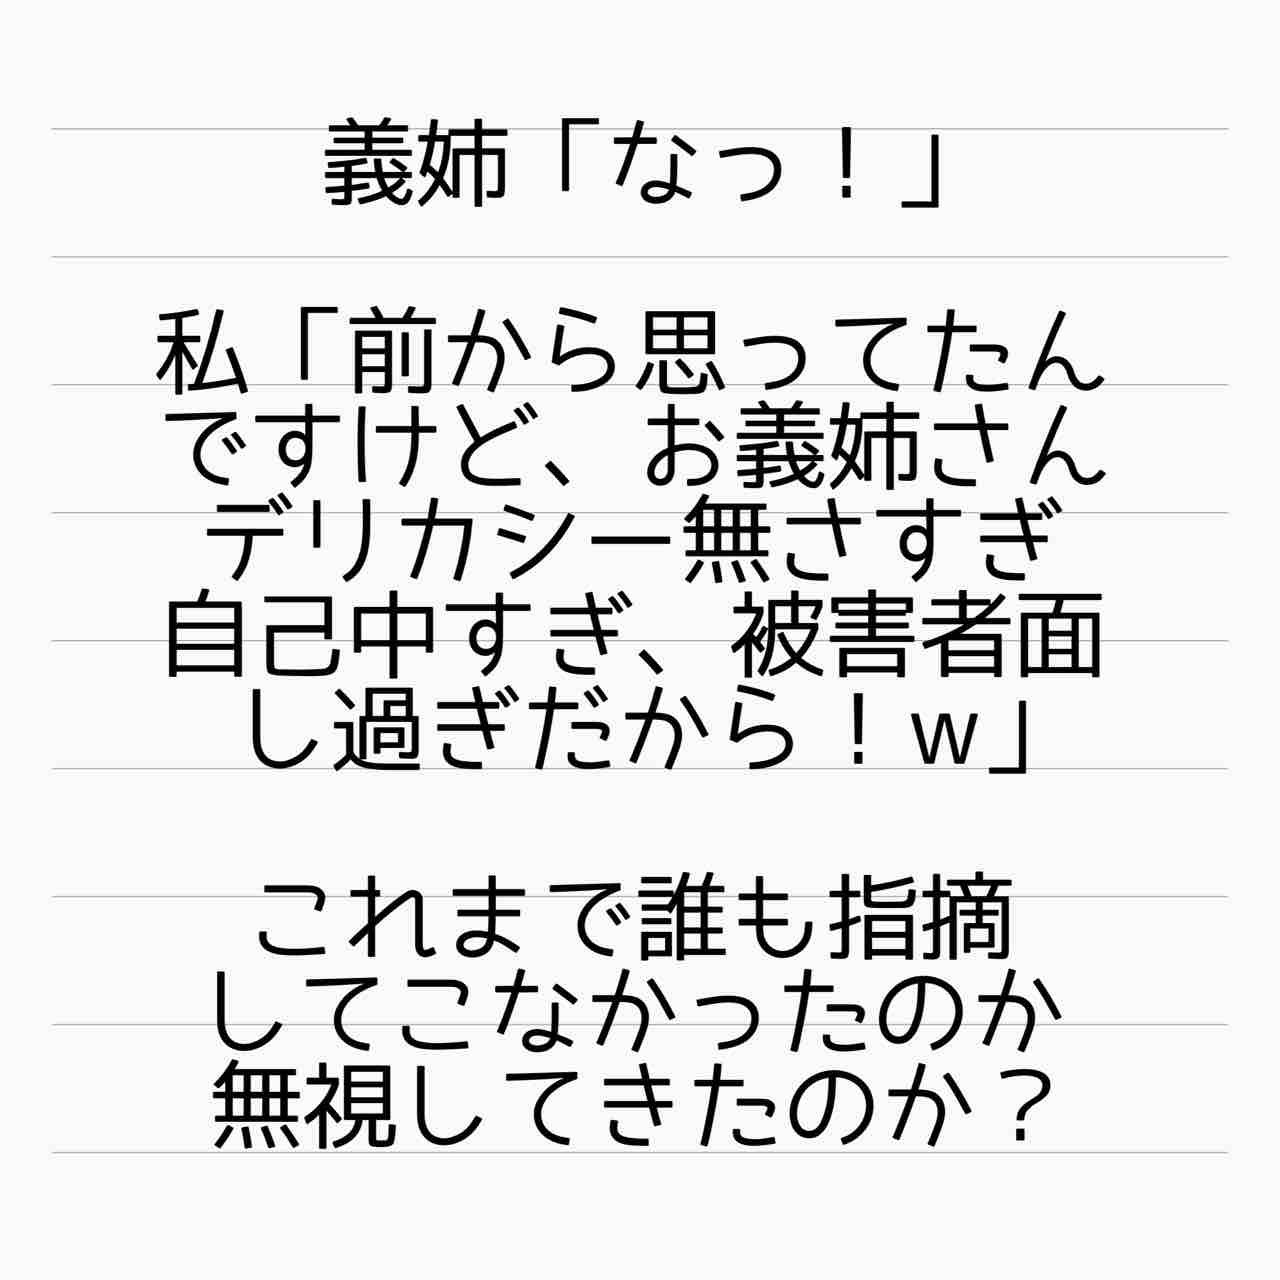 義姉「なっ！」
私「前から思ってたん
ですけど、お義姉さん
デリカシー無さすぎ
自己中すぎ、被害者面
し過ぎだから！w」
これまで誰も指摘
してこなかったのか
無視してきたのか？